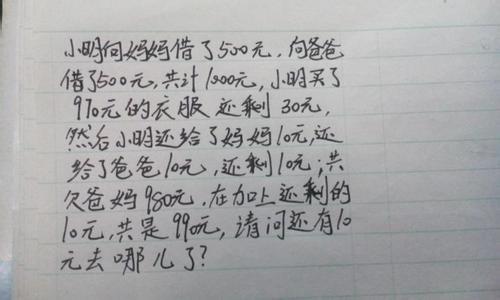 小明向妈妈借了500元，向爸爸
借了500元，共计1000元，小明买了
970元的衣服还剩30元，
然后小明还给了妈妈10元，还
给了爸爸10元，还剩10元；共
欠爸妈980元，在加上还剩的
10元，共是990元，请问还有10
元去哪儿了？